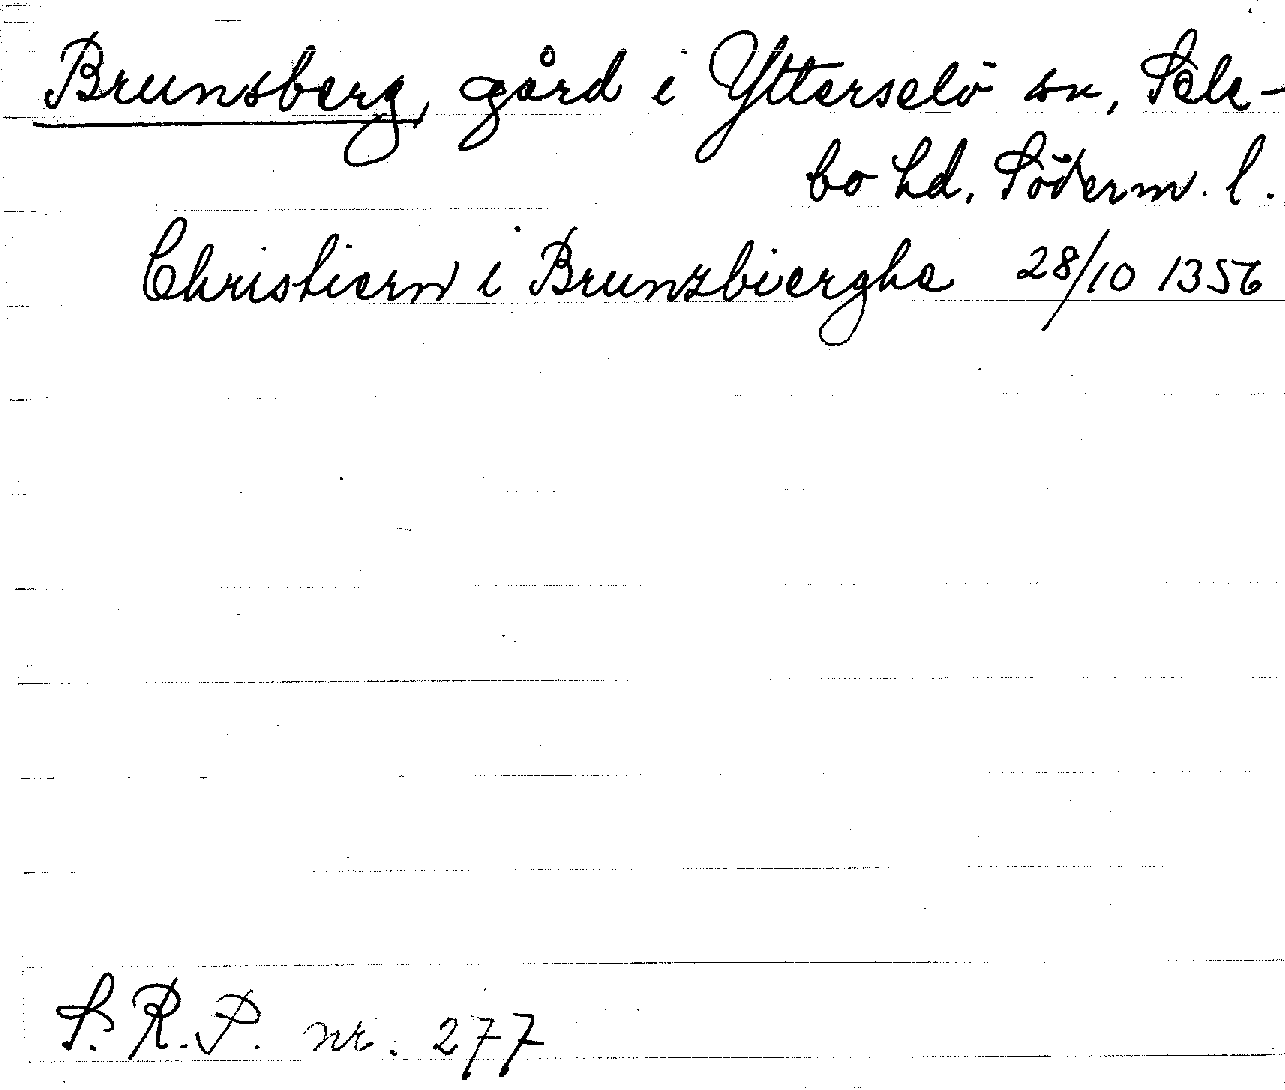 Brunsberg, gård i Ytterselö sn, Sele-
bo hd. Söderm. l.
Christiern i Brunzbierghe 28/10 1356
S.R.P. nr. 277